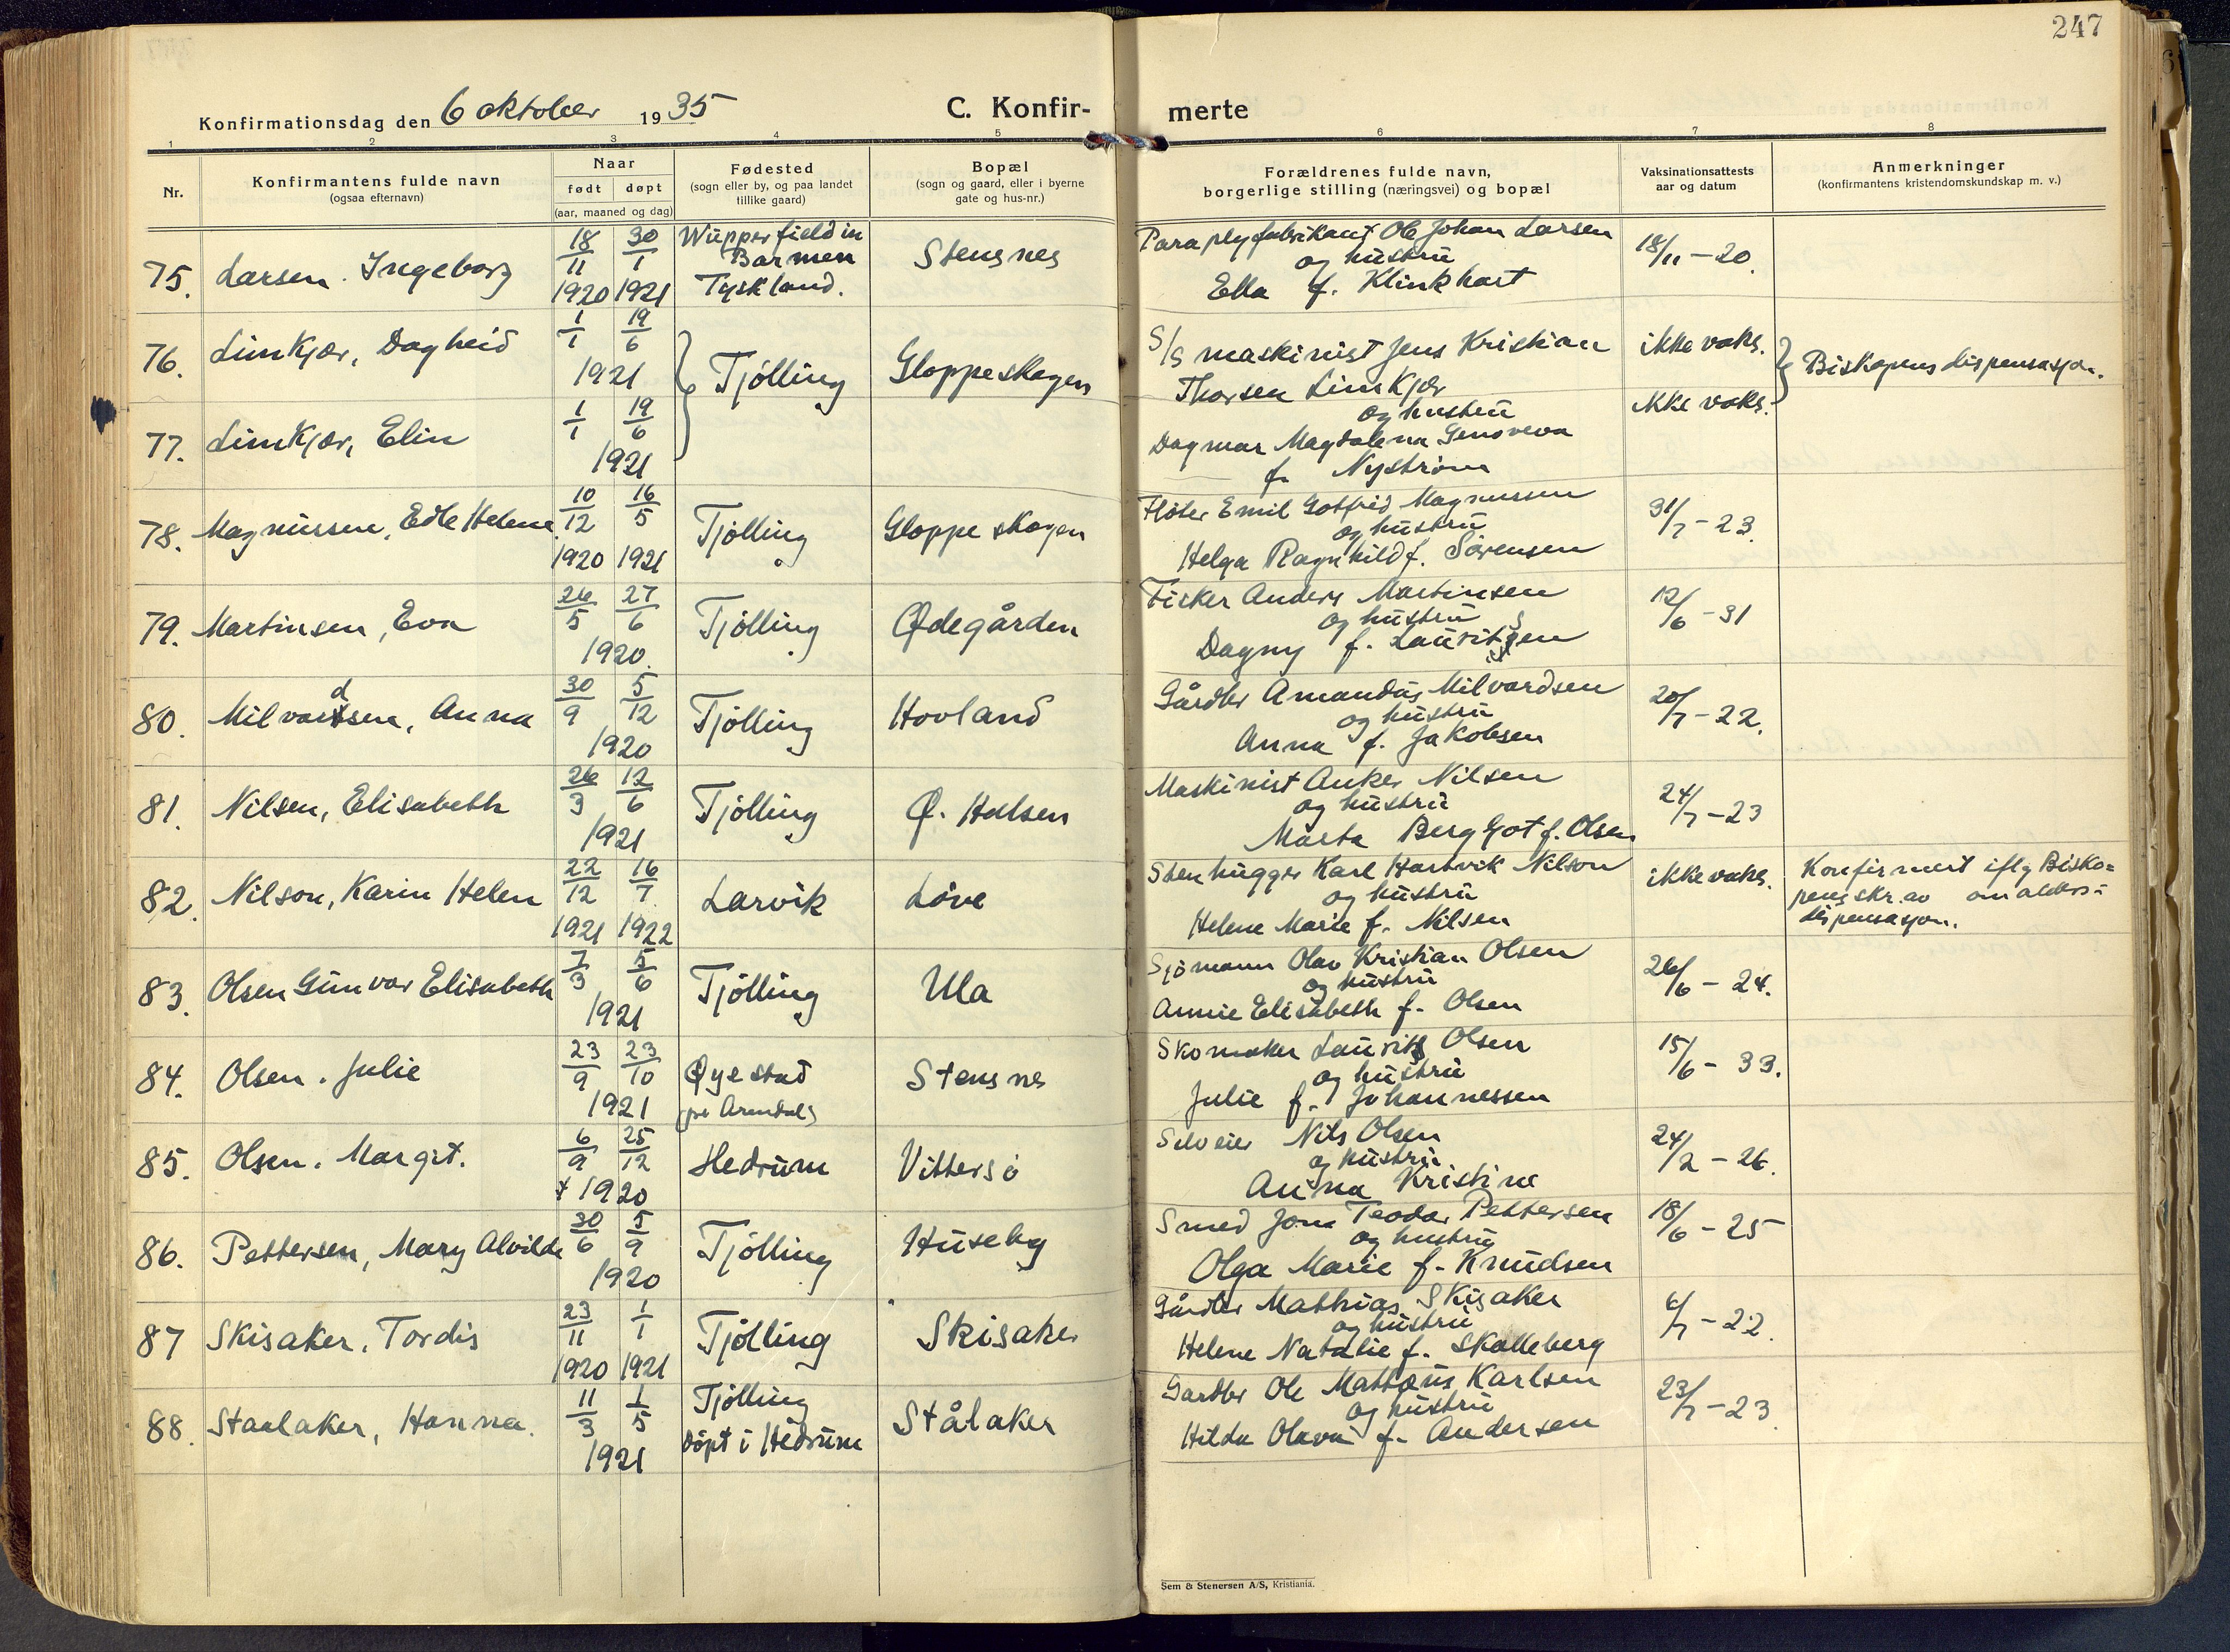 247
Konfirmationsdag den 6 oktober 1935
C. Konfirmerte
1 2 3 4 5 6 7 8
Nr.
Konfirmantens fulde navn
(ogsaa efternavn)
Naar
født døpt
(aar, maaned og dag)
Fødested
(sogn eller by, og paa landet
tillike gaard)
Bopæl
(sogn og gaard, eller i byerne
gate og hus-nr.)
Forældrenes fulde navn,
borgerlige stilling (næringsvei) og bopæl
Vaksinationsattests
aar og datum
Anmerkninger
(konfirmantens kristendomskundskap m. v.)
75. Larsen. Ingeborg
18/11 1920 30/1 1921
Wupperfield in
Barmen
Tyskland.
Stensnes
Paraplyfabrikant Ole Johan Larsen
og hustru
Ella f. Klinkhart
18/11 - 20.
76. Limkjær, Dagheid
1/1 19/6
1921
Tjølling
Gloppeskogen
S/S maskinist Jens Kristian
Thorsen Limkjær
og hustru
Dagmar Magdalena Genoveva
f. Nyström
ikke vaks.
Biskopens dispensasjon.
77. Limkjær, Elin
1/1 19/6
1921
ikke vaks.
78. Magnussen, Edle Helene.
10/12 1920 16/5 1921
Tjølling
Gloppeskogen
Fløter Emil Gotfred Magnussen
og hustru
Helga Ragnhild f. Sørensen
31/7 - 23.
79. Martinsen, Eva
26/5 27/6
1920.
Tjølling
Ødegården
Fisker Anders Martinsen
og hustru
Dagny f. Lauritsen
12/6 - 31
80. Milvardsen, Anna
30/9 5/12
1920
Tjølling
Hovland
Gårdbr Amandus Milvardsen
og hustru
Anna f. Jakobsen
20/7 - 22.
81. Nilsen, Elisabeth
26/3 12/6
1921
Tjølling
Ø. Halsen
Maskinist Anker Nilsen
og hustru
Marta Berggot f. Olsen
24/7 - 23
82. Nilson, Karin Helen
22/12 1921 16/7 1922
Larvik
Løve
Stenhugger Karl Hartvik Nilson
og hustru
Helene Marie f. Nilsen
ikke vaks.
Konfirmert iflg Bisko-
pens skr. av om alders-
dispensasjon.
83. Olsen Gunvor Elisabeth
7/3 5/6
1921
Tjølling
Ula
Sjömann Olav Kristian Olsen
og hustru
Annie Elisabeth f. Olsen
26/6 - 24.
84. Olsen. Julie
23/9 23/10
1921
Øyestad
pr Arendal
Stensnes
Skomaker Laurits Olsen
og hustru
Julie f. Johannessen
15/6 - 33.
85. Olsen. Margit.
6/9 25/12
1920
Hedrum
Vittersö
Selveier Nils Olsen
og hustru
Anna Kristine
24/2 - 26.
86. Pettersen, Mary Alvilde
30/6 5/9
1920
Tjölling
Huseby
Smed Jons Teodor Pettersen
og hustru
Olga Marie f. Knudsen
18/6 - 25
87 Skisaker. Tordis
23/11 1920 1/1 1921
Tjölling
Skisaker
Gårdbr Mathias Skisaker
og hustru
Helene Natalie f. Skalleberg
6/7 - 22.
88. Staalaker, Hanna.
11/3 1/5
1921
Tjölling
döpt i Hedrum
Stålaker
Gardbr Ole Mattæus Karlsen
og hustru
Hilda Olava f. Andersen
23/7 - 23
Sem & Stenersen A/S, Kristiania.